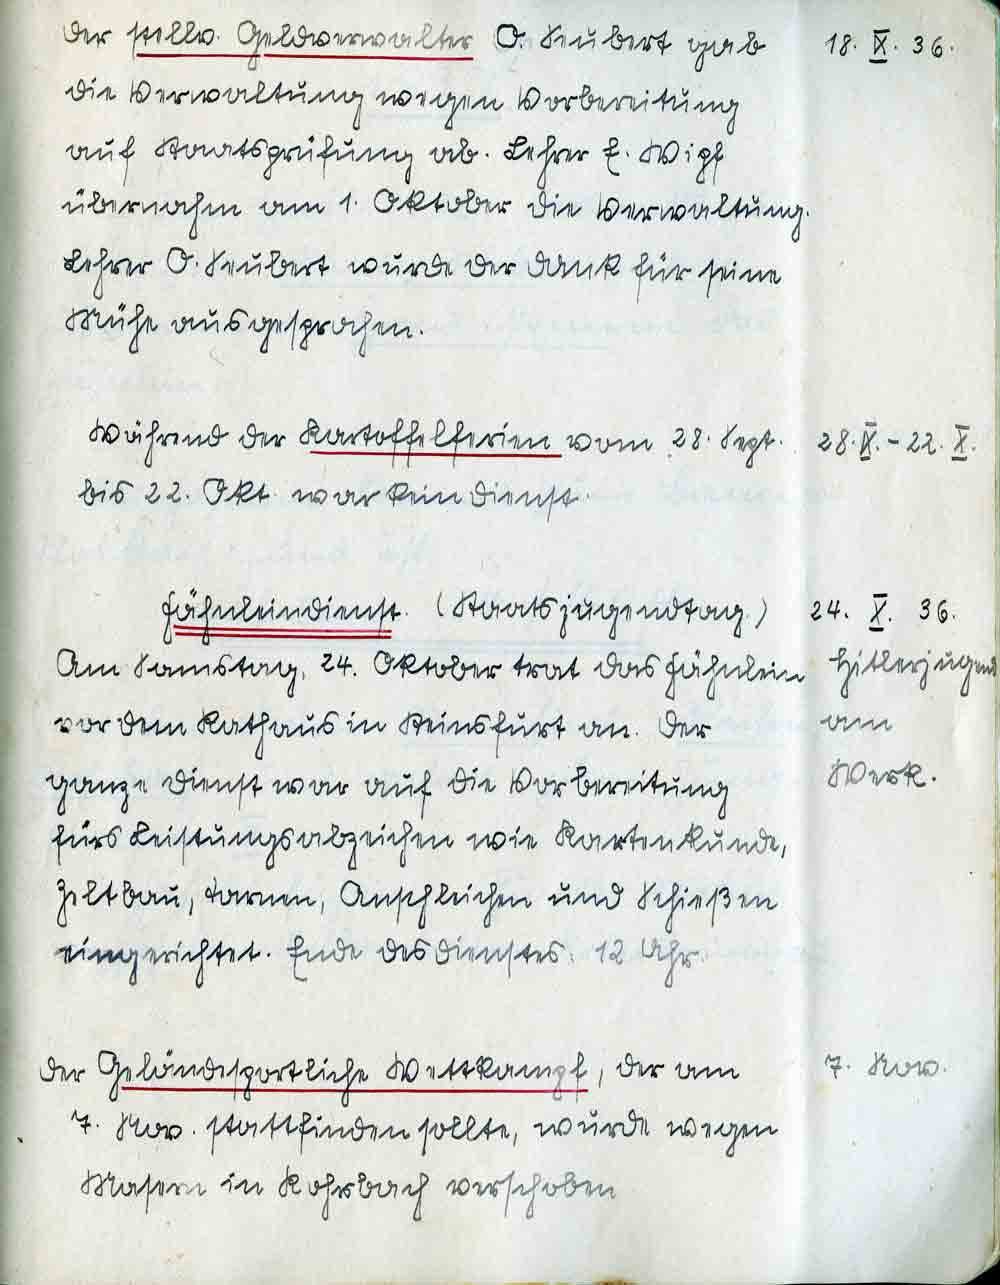 Der stellv. Geldverwalter O. Neubert gab 18. IX. 36.
die Verwaltung wegen Vorbereitung
auf Staatsprüfung ab. Lehrer E. Wipf
übernahm am 1. Oktober die Verwaltung.
Lehrer O. Neubert wurde der Dank für seine
Mühe ausgesprochen.
Während der Kartoffelferien vom 28. Sept. 28. IX. - 22. X.
bis 22. Okt. war kein Dienst.
Fähnleindienst. (Staatsjugendtag.) 24. X. 36.
Am Samstag, 24. Oktober trat das Fähnlein Hitlerjugend
vor dem Rathaus in Steinsfurt an. Der am
ganze Dienst war auf die Vorbereitung Werk.
fürs Leistungsabzeichen wie Kartenkunde,
Zeltbau, Tarnen, Anschleichen und Schießen
eingerichtet. Ende des Dienstes: 12 Uhr.
Der Geländesportliche Wettkampf, der am 7. Nov.
7. Nov. stattfinden sollte, wurde wegen
Masern in Rohrbach verschoben